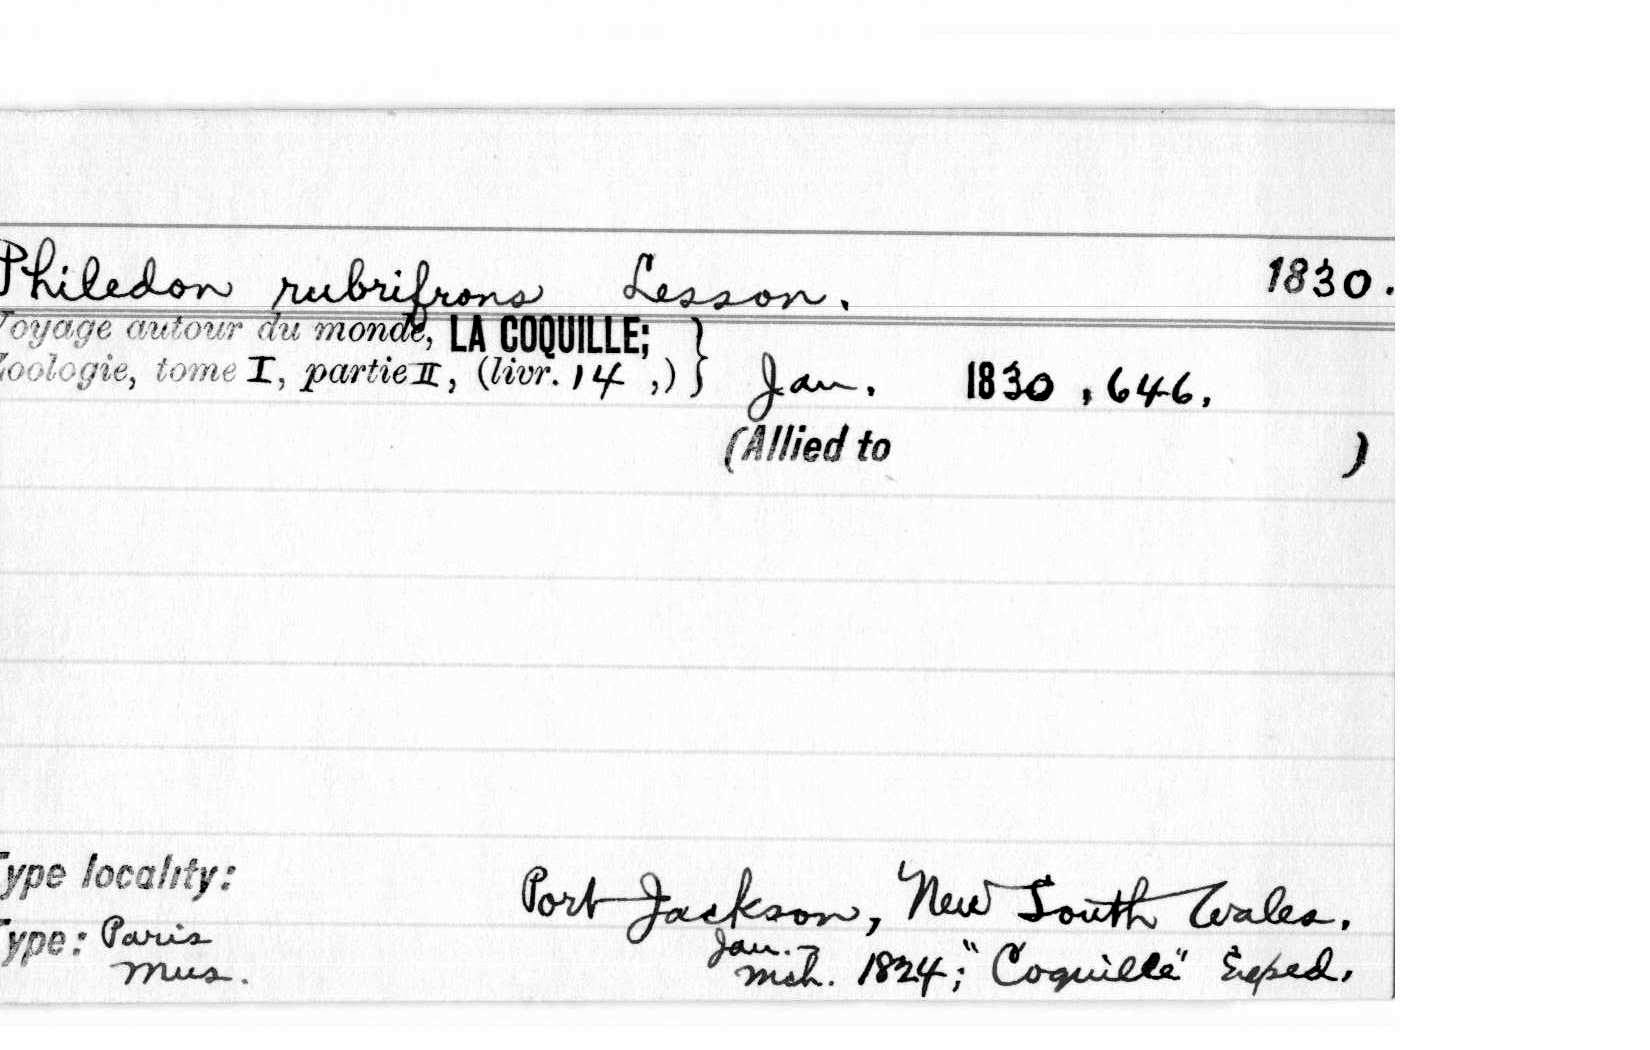 Philedon rubrifrons Lesson. 1830.
Voyage autour du monde, LA COQUILLE; }
Zoologie, tome I, partie II, (livr. 14 ,) } Jan. 1830 , 646.
(Allied to )
Type locality: Port Jackson, New South Wales.
Type: Paris Jan. –
Mus. Mch. 1824; "Coquille" Exped.